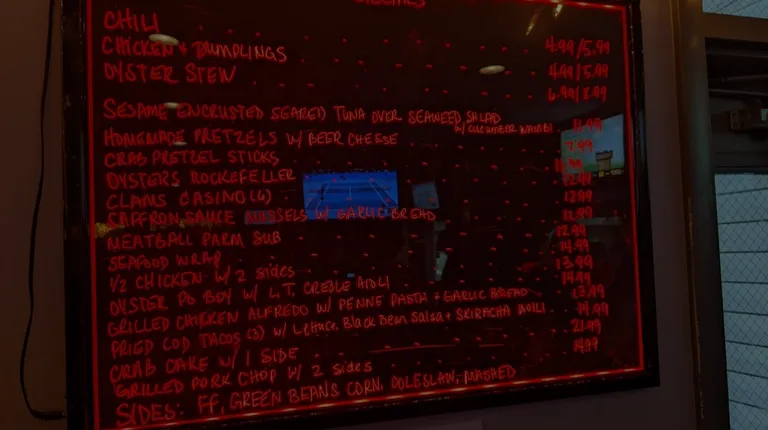 SPECIALS
CHILI 4.99/5.99
CHICKEN + DUMPLINGS 4.99/5.99
OYSTER STEW 6.99/8.99
SESAME ENCRUSTED SEARED TUNA OVER SEAWEED SALAD
W/ CUCUMBER WASABI 11.99
HOMEMADE PRETZELS W/ BEER CHEESE 7.99
CRAB PRETZEL STICKS
OYSTERS ROCKEFELLER
CLAMS CASINO (6) 12.99
SAFFRON SAUCE MUSSELS W/ GARLIC BREAD 11.99
MEATBALL PARM SUB 12.99
SEAFOOD WRAP 14.99
1/2 CHICKEN W/ 2 sides 13.99
OYSTER PO BOY W/ L.T. CREOLE AIOLI 14.99
GRILLED CHICKEN ALFREDO W/ PENNE PASTA + GARLIC BREAD 13.99
FRIED COD TACOS (3) W/ Lettuce, Black Bean Salsa + SRIRACHA AIOLI
CRAB CAKE W/ 1 SIDE 21.99
GRILLED PORK CHOP W/ 2 sides
SIDES: FF, GREEN BEANS CORN, COLESLAW, MASHED